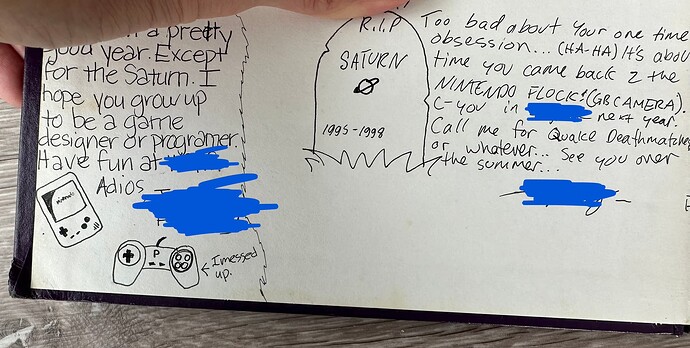 a pretty
good year. Except
for the Saturn. I
hope you grow up
to be a game
designer or programer.
Have fun at
Adios
Nintendo
P
← I messed
up.
R.I.P
SATURN
1995-1998
Too bad about your one time
obsession... (HA-HA) It's abou
time you came back 2 the
NINTENDO FLOCK! (GB CAMERA).
C-you in next year.
Call me for Quake Deathmatche
or whatever... See you over
the summer...